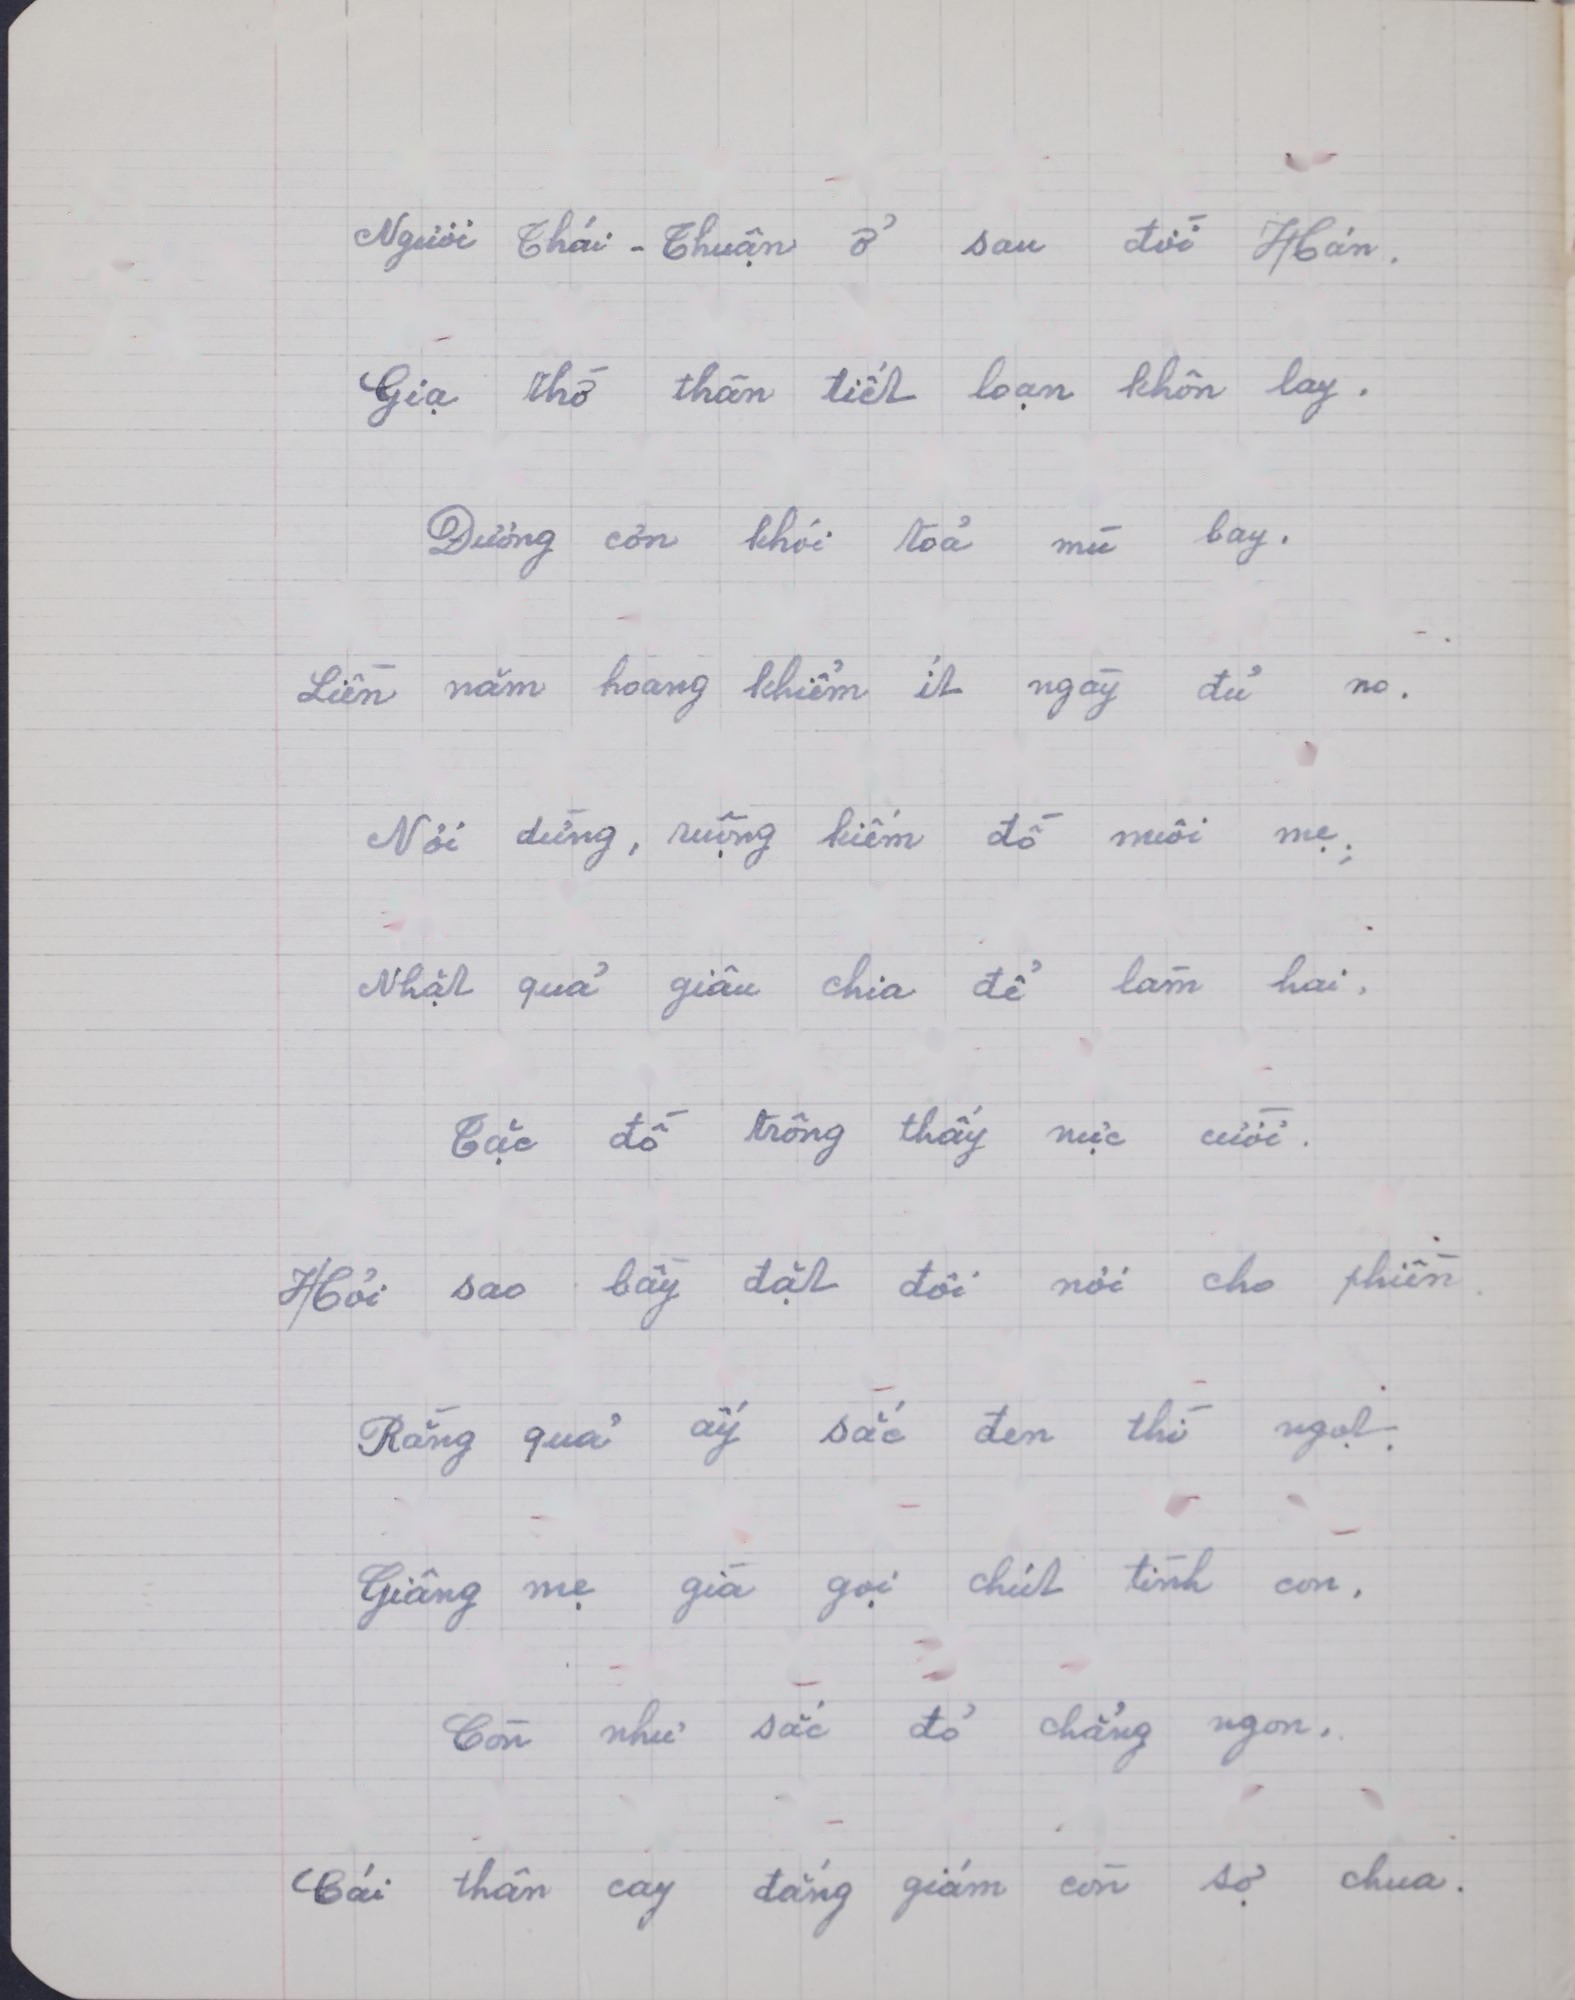 Người Thái-Thuận ở sau đời Hán.
Gia thờ thân tiết loạn khôn lay.
Đương cơn khói toả mù bay.
Liền năm hoang khiểm ít ngày đủ no.
Nơi dừng, ruộng kiếm đồ nuôi mẹ;
Nhặt quả giâu chia để làm hai.
Tặc đồ trông thấy nực cười.
Hỏi sao bầy đặt đôi nơi cho phiền.
Rằng quả ấy sắc đen thì ngọt.
Giâng mẹ già gọi chút tình con.
Còn như sắc đỏ chẳng ngon.
Cái thân cay đắng giám còn sợ chua.